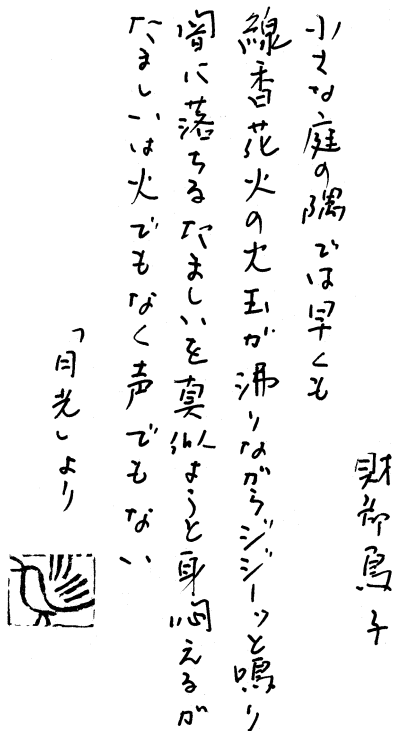 財部鳥子
小さな庭の隅では早くも
線香花火の火玉が沸りながらジジーッと鳴り
闇に落ちるたましいを真似ようと身悶えるが
たましいは火でもなく声でもない
「月光」より